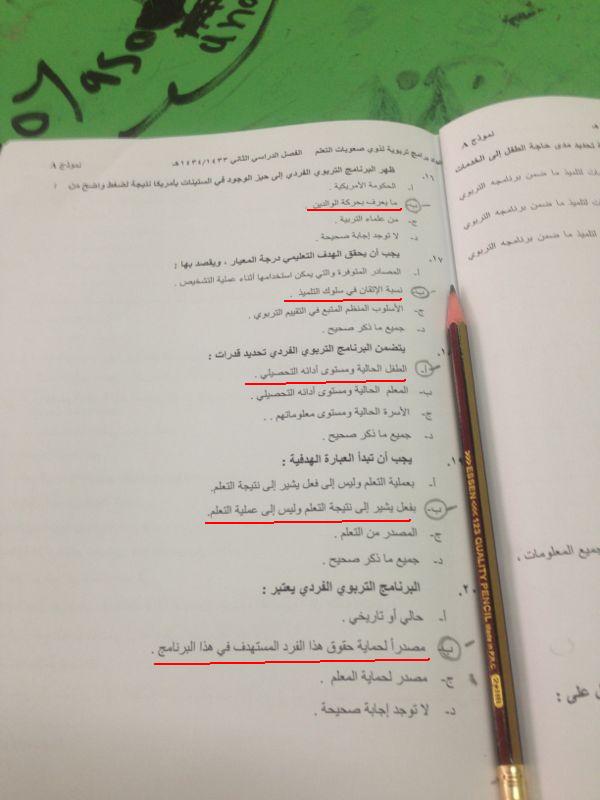 نموذج A
الفصل الدراسي الثاني ١٤٣٤/١٤٣٣هـ
برامج تربوية لذوي صعوبات التعلم
١٦. ظهر البرنامج التربوي الفردي إلى حيز الوجود في الستينات بأمريكا نتيجة لضغط واضح من :
أ- الحكومة الأمريكية .
ب- ما يعرف بحركة الوالدين .
ج- من علماء التربية .
د- لا توجد إجابة صحيحة .
١٧. يجب أن يحقق الهدف التعليمي درجة المعيار ، ويقصد بها :
أ- المصادر المتوفرة والتي يمكن استخدامها أثناء عملية التشخيص .
ب- نسبة الإتقان في سلوك التلميذ .
ج- الأسلوب المنظم المتبع في التقييم التربوي .
د- جميع ما ذكر صحيح .
يتضمن البرنامج التربوي الفردي تحديد قدرات :
أ- الطفل الحالية ومستوى أدائه التحصيلي .
ب- المعلم الحالية ومستوى أدائه التحصيلي .
ج- الأسرة الحالية ومستوى معلوماتهم . .
د- جميع ما ذكر صحيح .
يجب أن تبدأ العبارة الهدفية :
أ- بعملية التعلم وليس إلى فعل يشير إلى نتيجة التعلم.
ب- بفعل يشير إلى نتيجة التعلم وليس إلى عملية التعلم.
ج- المصدر من التعلم .
د- جميع ما ذكر صحيح .
٢٠. البرنامج التربوي الفردي يعتبر :
أ- حالي أو تاريخي .
ب- مصدراً لحماية حقوق هذا الفرد المستهدف في هذا البرنامج .
ج- مصدر لحماية المعلم .
د- لا توجد إجابة صحيحة .
نموذج A
تحديد مدى حاجة الطفل إلى الخدمات
للتلميذ ما ضمن برنامجه التربوي
للتلميذ ما ضمن برنامجه التربوي
للتلميذ ما ضمن برنامجه التربوي
جميع المعلومات ،
على :
>>>ESSEN<<< 123 QUALITY PENCIL